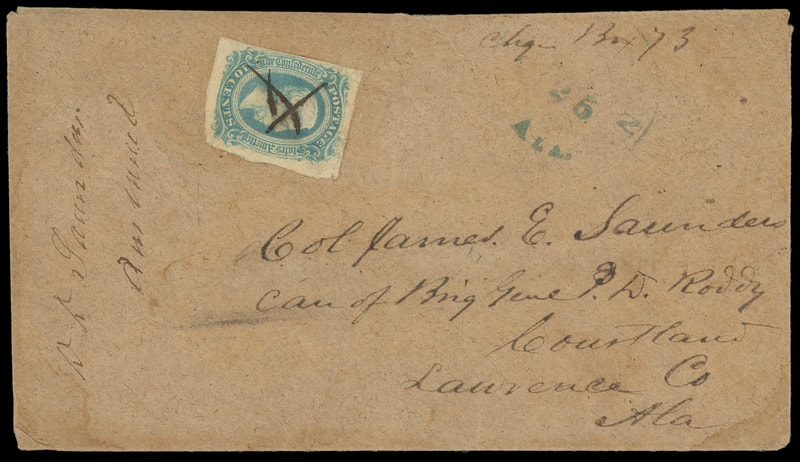 chge Box 73
The Confederate
States of America
POSTAGE
10 CENTS
25
ALA.
Col. James. E. Saunders
care of Brig Genl P. D. Roddy
Courtland
Lawrence Co
Ala
Saunders